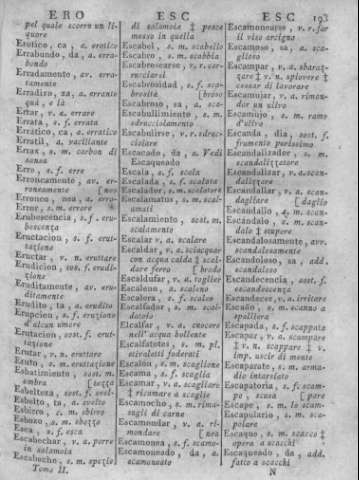 ERO
ESC
ESC 193
pel quale scorre un li-
quore
Erotico, ca, a. erotico
Errabundo, da, a. erra-
bondo
Erradamento, av. erra-
tamente
Erradizo, za, a. errante
quá, e lá
Errar, v. a. errare
Errata, s. f. errata
Erratico, ca, a. erratico
Erratil, a. vacillante
sansa
Erro, s. f. erre
Erroneamento, av. er-
roneamente
Erroneo, nea, a. erro-
Erubescencia, s. f. eru-
bescenza
Eructacion, s. f. erut-
tazione
Eructar, v. n. eruttare
Erudicion, sos. f. erudi-
zione
Eruditamente, av. eru-
ditamente
Erudito, ta, a. erudito
Erupcion, s. f. eruzione
d'alcun umore
Erutacion, sost. f. erut-
tazione
Erutar, v. n. eruttare
Eruto, s. m. eruttazione
Esbatimiento, sost. m.
ombra [tezza
Esbelteza, sost. f. svel-
Esbelto, ta, a. svelto
Esbirro, s. m. sbirro
Esbozo, s. m. sbozzo
Esca, s. f. esca
Escabechar, v. a. porre
in salamoia
Escabeche, s. m. spezie
Tomo II.
di salamoia ‡ pesce
messo in quella
Escabel, s. m. scabello
Escabro, s. m. scabbia
Escabrosearse, v. r. cor-
rucciarsi
Escabrosidad, s. f. sca-
brosità [broso
Escabroso, sa, a. sca-
Escabullimiento, s. m.
sdrucciolamento
Escabulirse, v. r. sdruc-
ciolare
Escacado, da, a. Vedi
Escaqueado
Escala, s. f. scala
Escalada, s. f. scalata
Escalador, s. m. scalatore
Escalamatus, s. m. scal-
Escalamiento, sost. m.
scalamento
Escalar v. a. scalare
Escaldar, v. a. sciacquar
con acqua calda ‡ scal-
dare ferro [brodo
Escaldufar, v. a. toglier
Escaleno, a. scaleno
Escalera, s. f. scalea
Escalfador, s. m. scal-
datoio
Escalfar, v. a. cuocere
nell'acqua bollente
Escalfarotes, s. m. pl.
stivaletti foderati
Escalon, s. m. scaglione
Escama, s. f. scaglia
Escamar, v. a. scagliare
‡ ricamare a scaglie
Escamocho, s. m. rima-
sugli di carne
Escamondar, v. a. ri-
mondare [nea
Escamonea, s. f. scamo-
Escamoneado, da, a.
scamoneato
Escamonearse, v. r. far
il viso arcigno
Escamoso, sa, a. sca-
glioso
Escampar, v. a. sbaraz-
zare ‡ v. n. spiovere ‡
cessar di lavorare
Escamujar, v. a. rimon-
dar un ulivo
Escamujo, s. m. ramo
d'ulivo
Escanda, dia, sost. f.
frumento purissimo
Escandalizador, s. m.
scandalizzatore
Escandalizar, v. a. scan-
dalizzare
Escandallar, v. a. scan-
dagliare [daglio
Escandallo, s. m. scan-
Escándalo, s. m. scan-
dalo ‡ stupere
Escandalosamente, avv.
scandalosamente
Escandaloso, sa, add.
scandaloso
Escandecencia, sost. f.
escandescenza
Escandecer, v. a. irritare
Escaño, s. m. scanno a
spalliera
Escapada, s. f. scappata
Escapar, v. a. scampare
‡ v. n. scappare ‡ v.
imp. uscir di mente
Escaparate, s. m. arma-
dio intarsiato
Escapatoria, s. f. scam-
po, scusa [pare
Escape, s. m. lo scam-
Escapulario, s. m. sca-
polare
Escaque, s. m. scacco ‡
opera a scacchi
Escaqueado, da, add.
fatto a scacchi
N